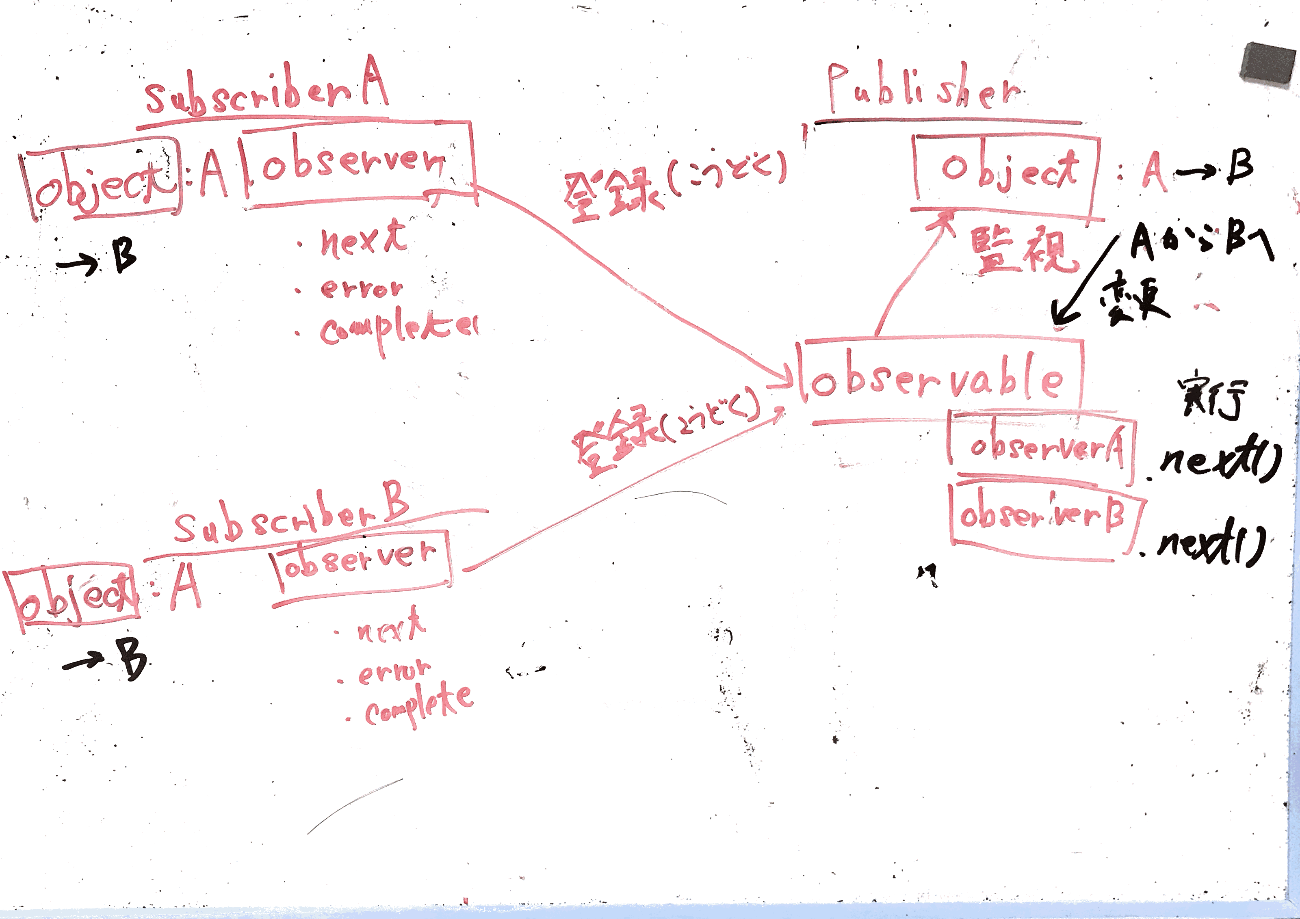 SubscriberA
object : A
observer
→ B
・next
・error
・complete
登録(こうどく)
Publisher
object : A → B
監視
AからBへ
変更
observable
実行
observerA .next()
observerB .next()
登録(こうどく)
SubscriberB
object : A
observer
→ B
・next
・error
・complete